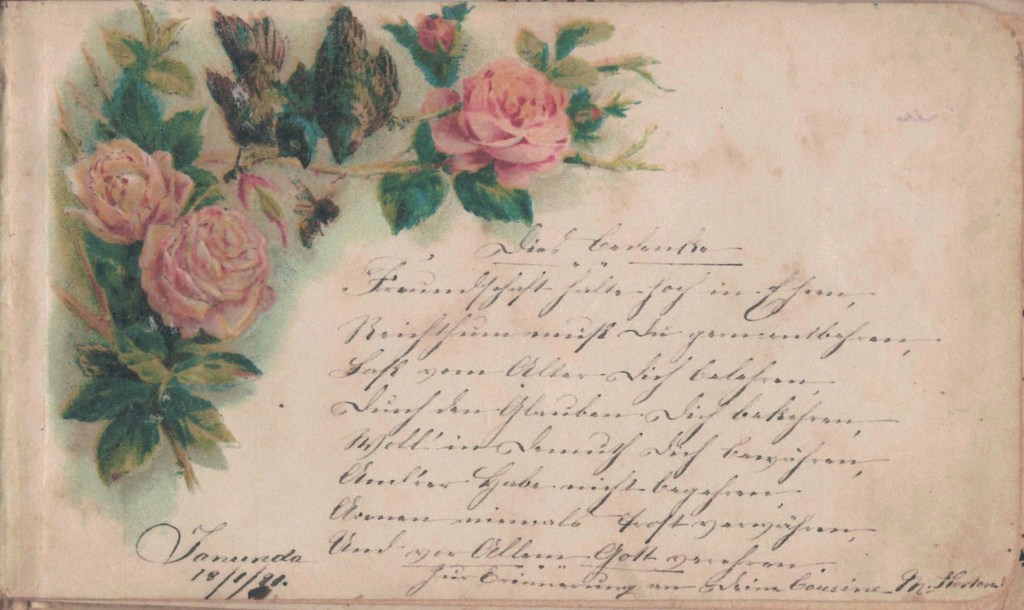 Dies bedenke
Freundschaft halte hoch in Ehren,
Reichthum mußt Du gern entbehren,
Laß vom Alter Dich belehren
Durch den Glauben Dich bekehren,
Woll' in Demuth Dich bewähren,
And'rer Habe nicht begehren,
Armen niemals Trost verwähren,
Und vor Allem Gott verehren
Zur Erinnerung an Deine Cousine M.
Tanunda
18/1/